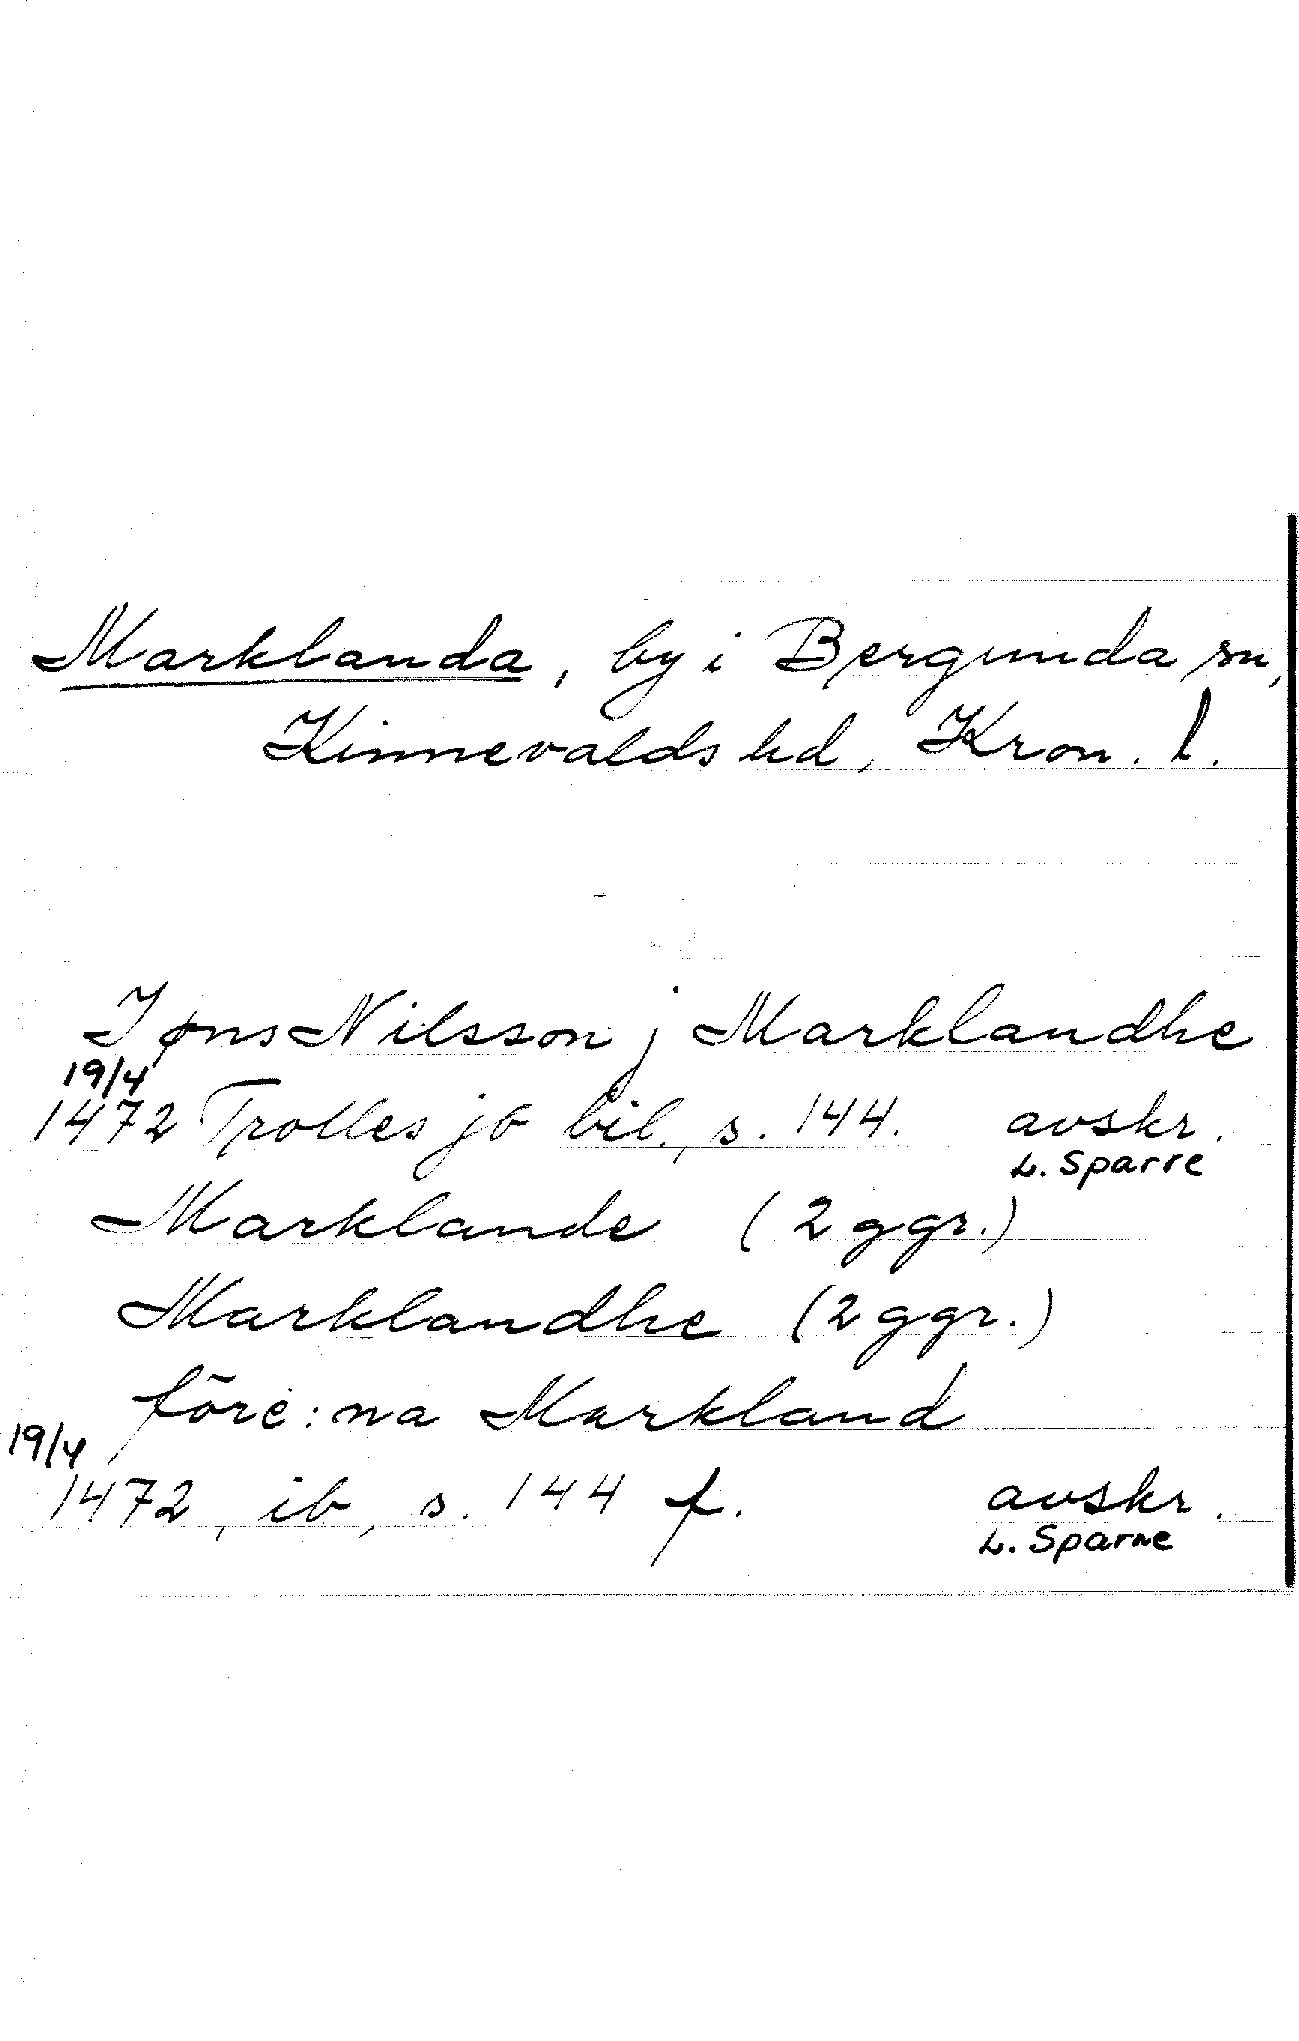 Marklanda, by i Bergunda sn,
Kinnevalds hd, Kron. l.
Jøns Nilsson j Marklandhe
19/4
1472 Trolles jb bil., s. 144. avskr.
L. Sparre
Marklande (2 ggr.)
Marklandhe (2 ggr.)
före:na Markland
19/4
1472, ib, s. 144 f. avskr.
L. Sparre